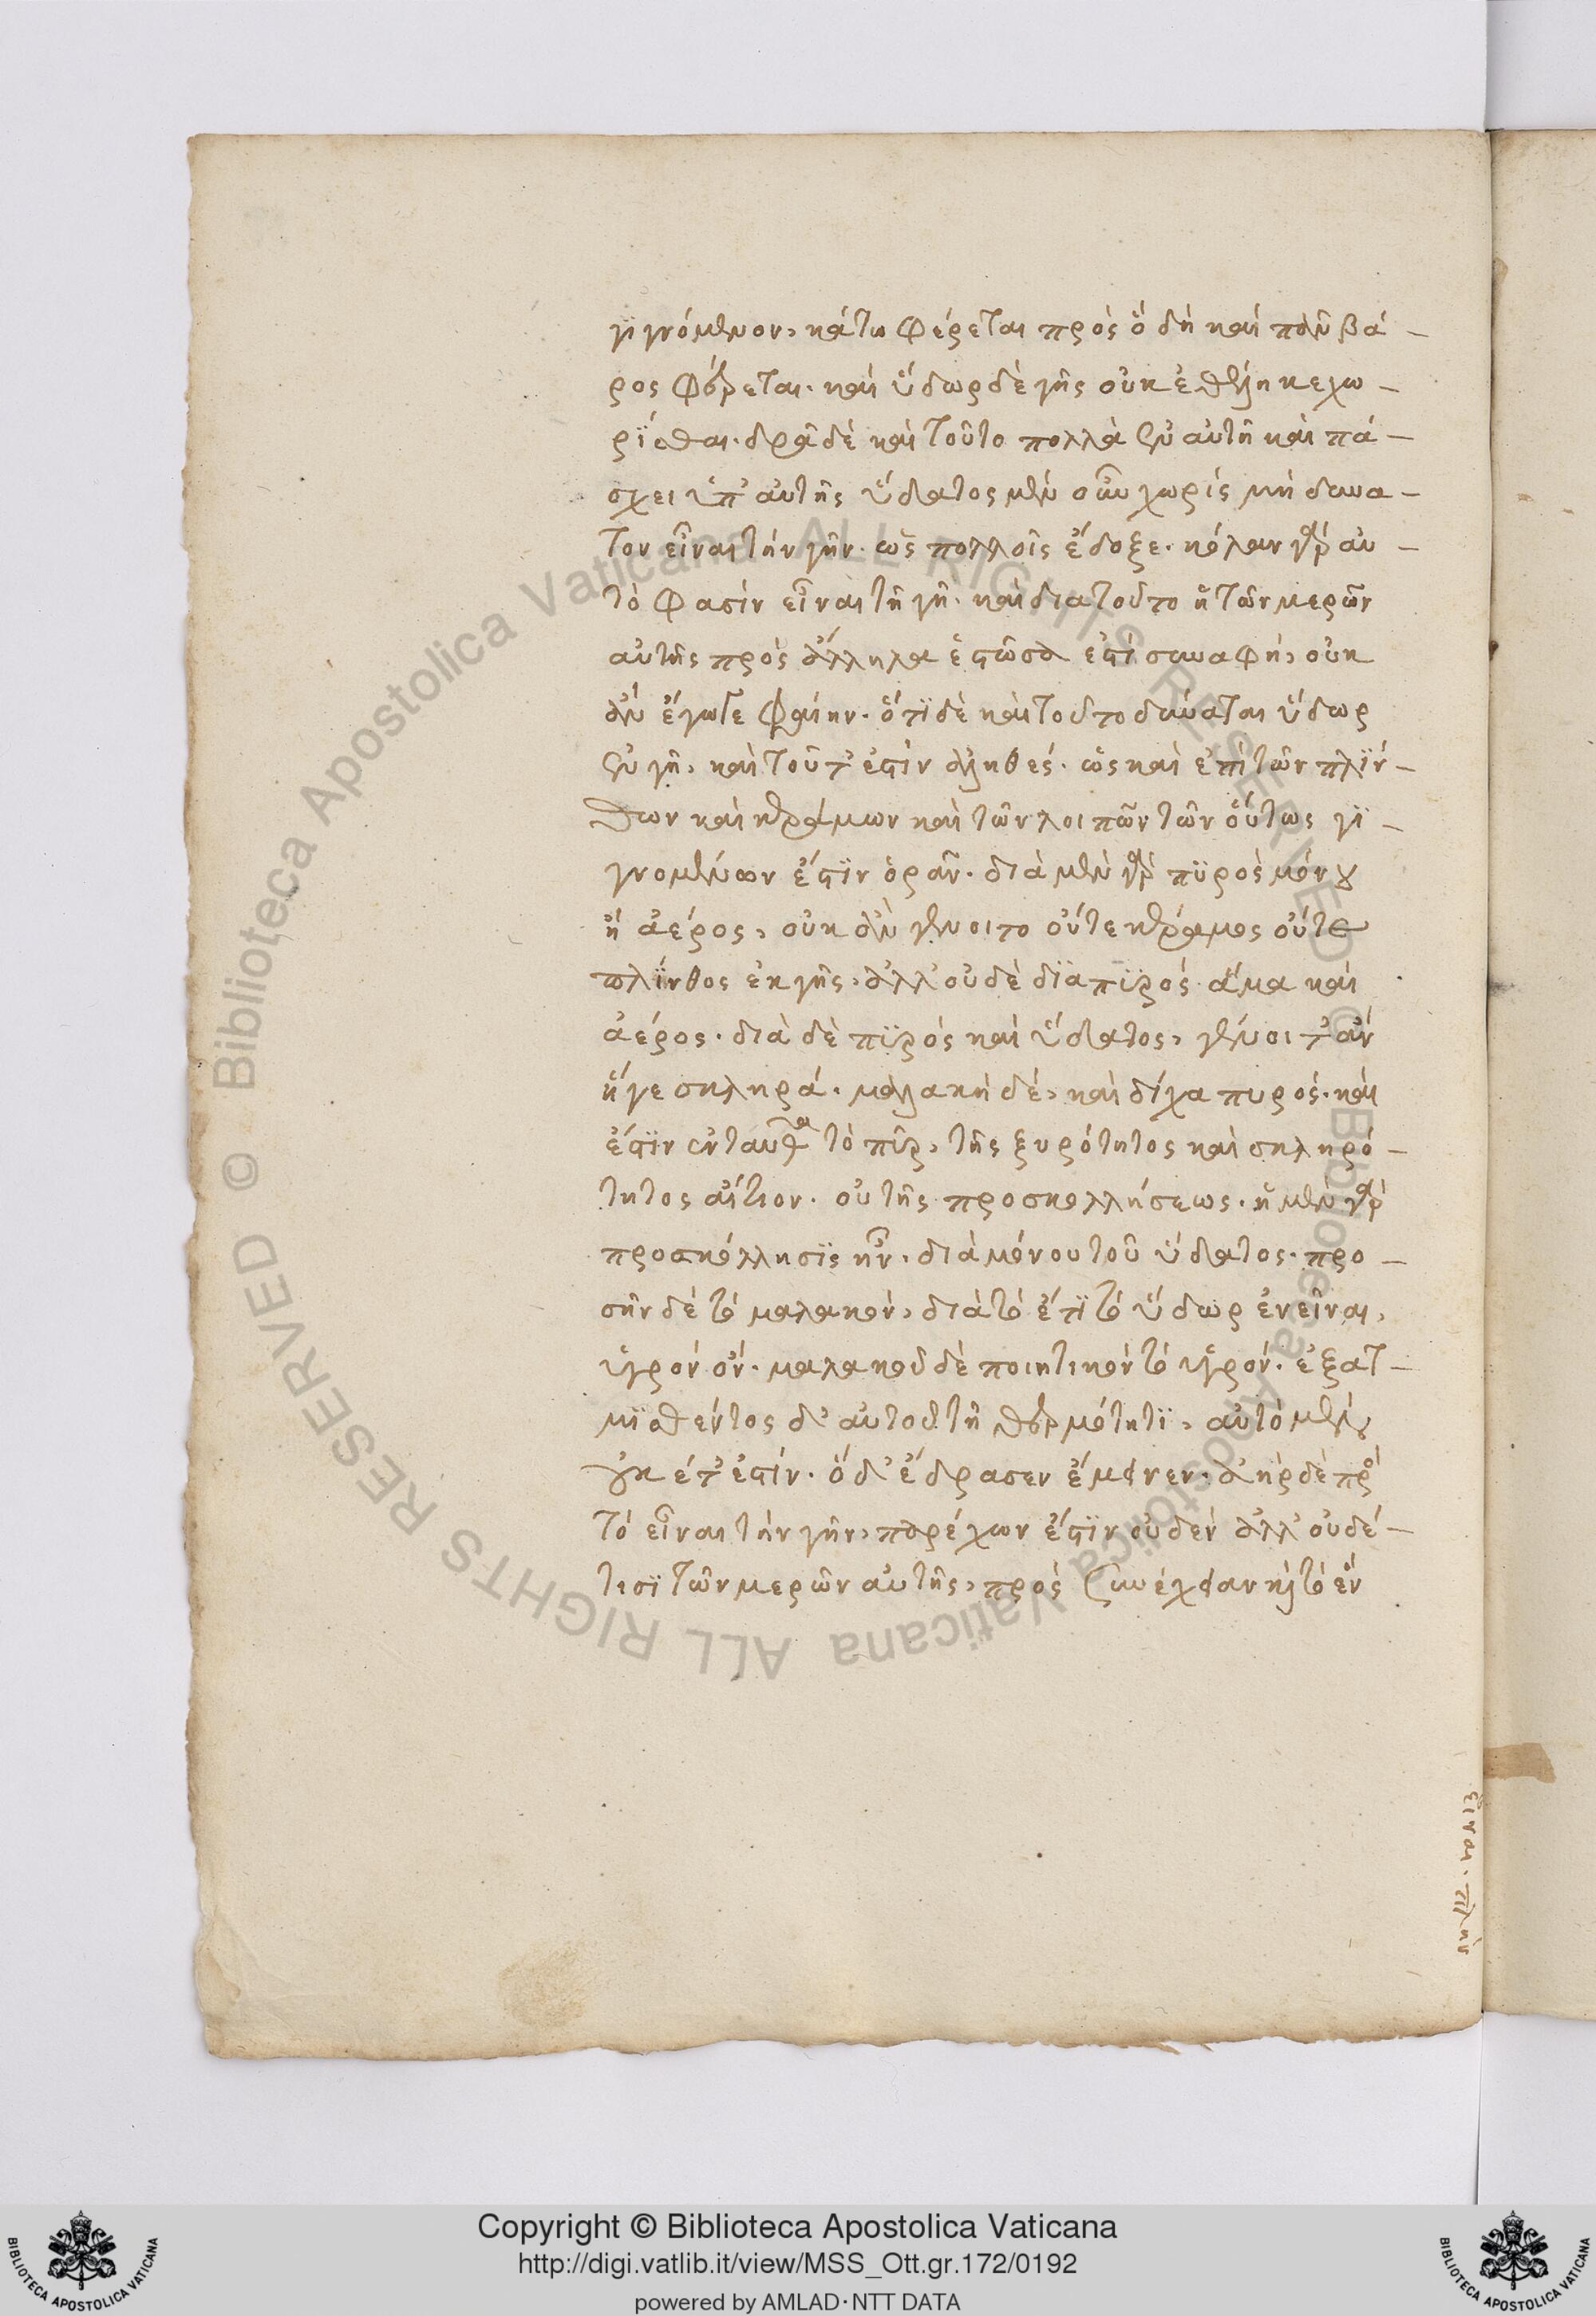 γιγνόμενον, κάτω φέρεται πρὸς ὃ δὴ καὶ πᾶν βά-
ρος φέρεται. καὶ ὕδωρ δὲ γῆς οὐκ ἐθέλῃ κεχω-
ρίσθαι. δρᾷ δὲ καὶ τοῦτο πολλὰ ἐν αὐτῇ καὶ πά-
σχει ὑπ' αὐτῆς ὕδατος μὲν οὖν χωρὶς μὴ δυνα-
τὸν εἶναι τὴν γῆν. ὡς πολλοῖς ἔδοξε. κόλλαν γὰρ αὐ-
τό φασιν εἶναι τῇ γῇ. καὶ διατοῦτο ἡ τῶν μερῶν
αὐτῆς πρὸς ἄλληλα ἑστῶσα ἐστὶ συναφή, οὐκ
ἂν ἔγωγε φαίην. ὅτι δὲ καὶ τοῦτο δύναται ὕδωρ
ἐν γῇ, καὶ τοῦτ' ἐστὶν ἀληθές. ὡς καὶ ἐπὶ τῶν πλίν-
θων καὶ κεράμων καὶ τῶν λοιπῶν τῶν οὕτως γι-
γνομένων ἔστιν ὁρᾶν. διὰ μὲν γὰρ πυρὸς μόνου
ἢ ἀέρος, οὐκ ἂν γένοιτο οὔτε κέραμος οὔτε
πλίνθος ἐκ γῆς, ἀλλ' οὐδὲ διὰ πυρὸς ἅμα καὶ
ἀέρος. διὰ δὲ πυρὸς καὶ ὕδατος, γένοιτ' ἂν
ἥγε σκληρά. μαλακὴ δέ, καὶ δίχα πυρός. καὶ
ἔστιν ἐνταῦθα τὸ πῦρ, τῆς ξηρότητος καὶ σκληρό-
τητος αἴτιον. οὐ τῆς προσκολλήσεως. ἡ μὲν γὰρ
προσκόλλησις ἦν. διὰ μόνου τοῦ ὕδατος. προ-
σῆν δὲ τὸ μαλακόν, διὰ τὸ ἔτι τὸ ὕδωρ ἐνεῖναι,
ὑγρὸν ὄν. μαλακοῦ δὲ ποιητικὸν τὸ ὑγρόν. ἐξατ-
μισθέντος δ' αὐτοῦ τῇ θερμότητι, αὐτὸ μὲν
οὐκ έτ' ἐστίν. ὃ δ' ἔδρασεν ἔμεινεν. ἀὴρ δὲ πρὸς
τὸ εἶναι τὴν γῆν, παρέχων ἔστιν οὐδὲν ἀλλ' οὐδέ-
τισι τῶν μερῶν αὐτῆς, πρὸς συνέχειαν καὶ τὸ ἓν
εἶναι. πλὴν
Copyright © Biblioteca Apostolica Vaticana
http://digi.vatlib.it/view/MSS_Ott.gr.172/0192
powered by AMLAD·NTT DATA
BIBLIOTECA APOSTOLICA VATICANA
BIBLIOTECA APOSTOLICA VATICANA
© Biblioteca Apostolica Vaticana ALL RIGHTS RESERVED
© Biblioteca Apostolica Vaticana ALL RIGHTS RESERVED